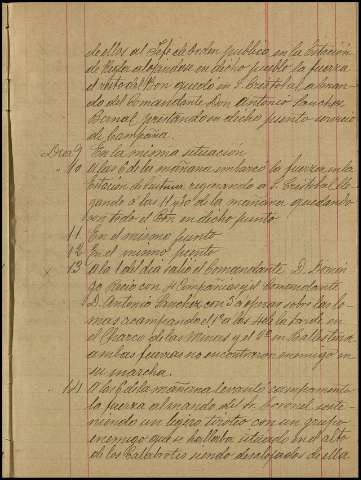 de ellos al Jefe de orden publico en la Estación
de Regla alojandose en dicho pueblo la fuerza
el resto del Bon quedó en S. Cristobal al man-
do del Comandante Don Antonio Sanchez
Bernal prestando en dicho punto servicio
de Campaña.
Dia 9 En la misma situacion
10 A las 6 de la mañana embarcó la fuerza en la
Estación de regresando a S. Cristobal lle-
gando a las 11 y 30 de la mañana quedando
en todo el Bon en dicho punto
11 En el mismo punto
12 En el mismo punto
13 A la 1 del dia salió el Comandante D. Domin-
go Recio con 4 Compañias y el Comandante
D. Antonio Sanchez con 3 a operar sobre las lo-
mas acampando el 1º a las 4 de la tarde en
el Charco de las Minas y el 2º en Ballestina
ambas fuerzas no encontraron enemigo en
su marcha.
14 A las 6 de la mañana levantó campamento
la fuerza al mando del Sr. Coronel soste-
niendo un ligero tiroteo con un grupo
enemigo que se hallaba situado en el alto
de los siendo desalojados de ella